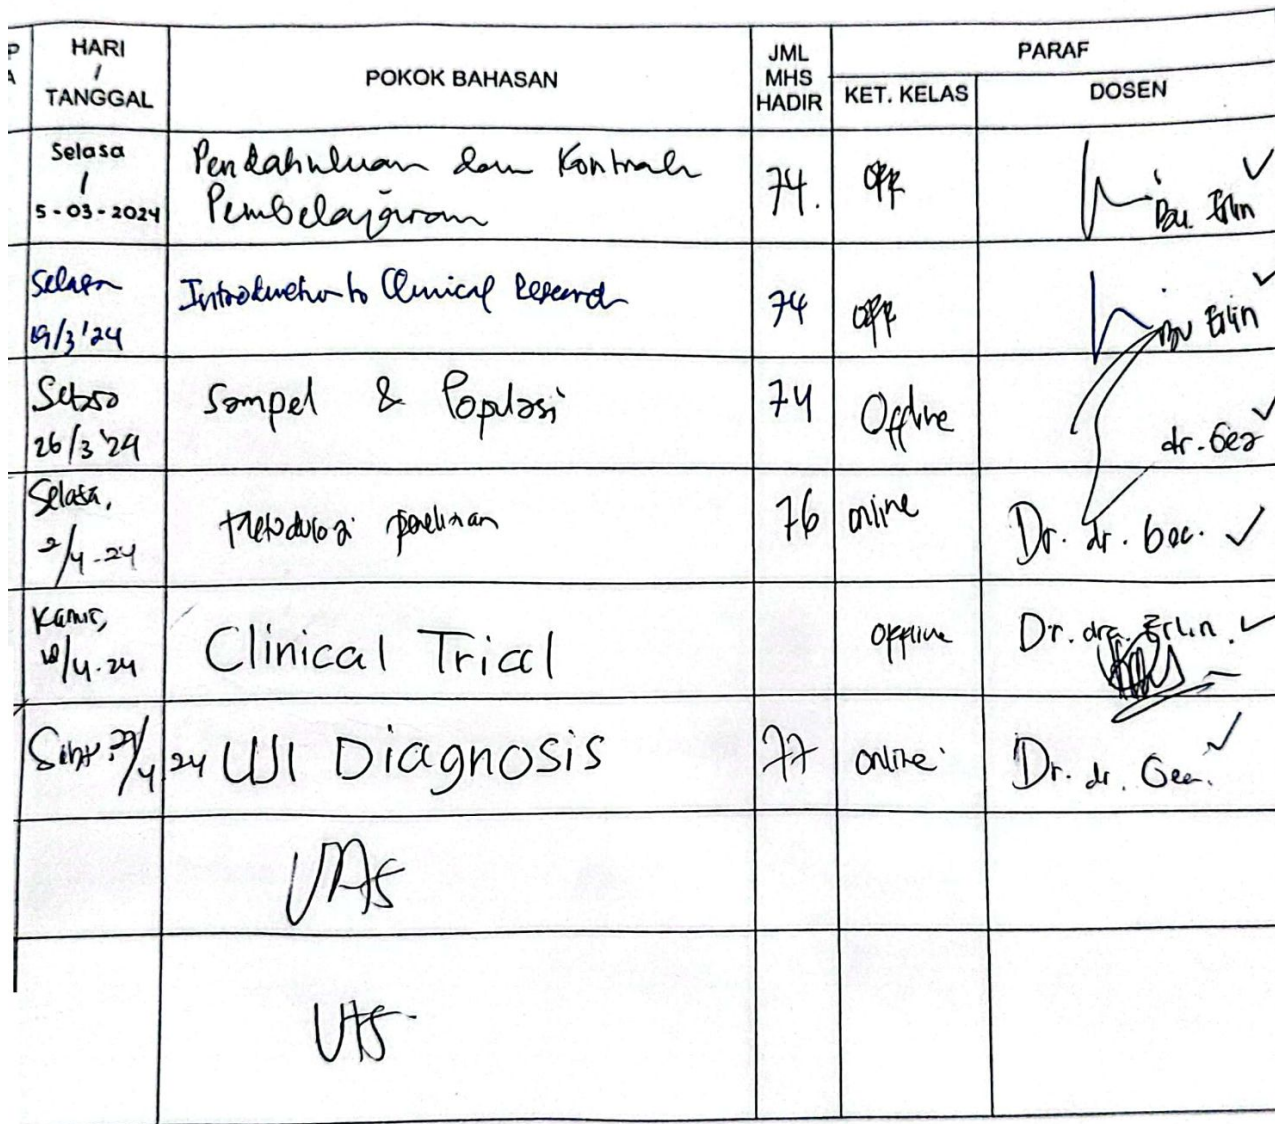 HARI
/
TANGGAL
POKOK BAHASAN
JML
MHS
HADIR
PARAF
KET. KELAS
DOSEN
Selasa
/
5-03-2024
Pendahuluan dan Kontrak
Pembelajaran
74.
OFF
Bu. Erlin
Selasa
19/3'24
Introduction to Clinical Research
74
OFF
Bu Erlin
Selasa
26/3'24
Sampel & Populasi
74
Offline
dr. Gea
Selasa,
2/4-24
Metodologi penelitian
76
online
Dr. dr. Gea.
Kamis,
/4-24
Clinical Trial
Offline
Dr. dra. Erlin.
/4/24
UJI Diagnosis
77
online
Dr. dr. Gea.
UTS
UTS